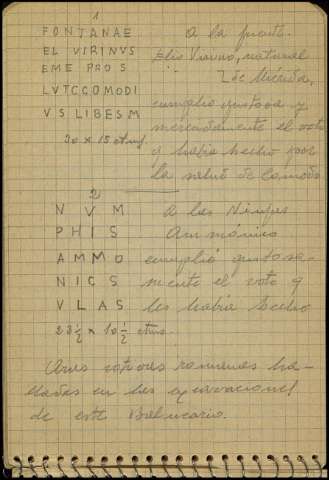 1
FONTANAE
EL VIRINVS
EME PRO S
LVTCCOMODI
VS LIBESM
30 x 15 ctms
A la fuente.
Elio Virino, natural
de Mérida,
cumplió gustosa y
merecidamente el voto
q había hecho por
la salud de Comodo
2
NVM
PHIS
AMMO
NICS
VLAS
23½ x 10½ ctms.
A las Ninfas
Ammónico
cumplió gustosa-
mente el voto q
les había hecho
Aras votivas romanas ha-
lladas en las excavaciones
de este Balneario.